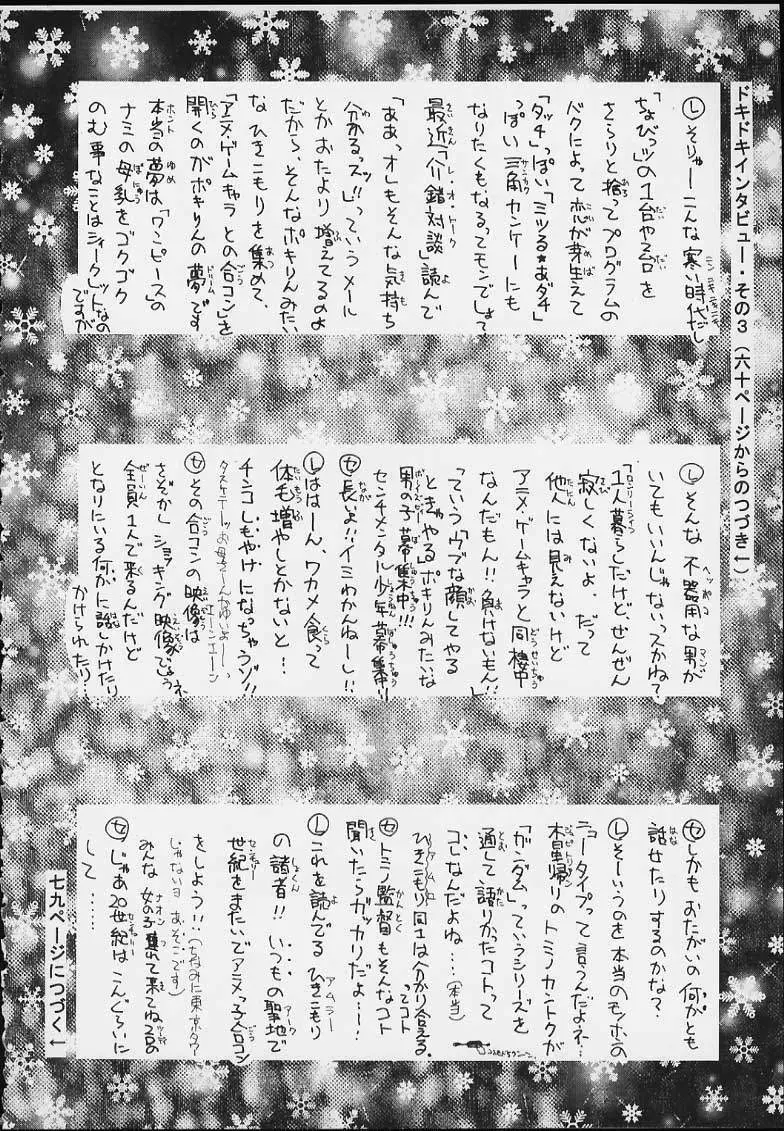 ドキドキインタビュー・その3(六十ページからのつづき↓)
Ⓛそりゃーこんな寒い時代だし
「ちょびっツ」の1台や2台を
さらりと捨ってプログラムの
バクによって恋が芽生えて
「タッチ」っぽい「ミツる★あダチ」
っぽい三角カンケーにも
なりたくもなるってモンでしょて
最近「介錯対談」読んで
「ああっオレもそんな気持ち
分かるっス!!」っていうメール
とかおたより増えてるのよ
だから、そんなポキりんみたい
なひきこもりを集めて、
「アニメ・ゲームキャラとの合コン」を
開くのがポキりんの夢です
本当の夢は「ワンピース」の
ナミの母乳をゴクゴク
のむ事なことはシィークレットなの
ですが
Ⓛそんな不器用な男が
いてもいいんじゃないっスかね?
「1人暮らしだけど、ぜんぜん
寂しくないよ。だって
他人には見えないけど
アニメ・ゲームキャラと同棲中
なんだもん!!負けないもん!!」
っていうウブな顔してやる
ときゃやるポキりんみたいな
男の子募集中!!!
センチメンタル少年募集中!!
Ⓣ長いよ!!イミわかんねー!!
Ⓛははーん、ワカメ食って
体毛増やしとかないと!!
チンコしもやけになっちゃうゾ!!
Ⓣその合コンの映像は
さぞかしショッキング映像でしょうネ
全員1人で来るんだけど
となりにいる何かに話しかけたり…
かけられたり…
Ⓣしかもおたがいの何かとも
話せたりするのかな?
Ⓛそーいうのを本当のモノホンの
ニュータイプって言うんだよネ…
木星帰りのトミノカントクが
「ガンダム」っていうシリーズを
通して語りたかったコトって
コレなんだよね…(本当)
ひきこもり同士は分かり合える。
ってコト
Ⓣトミノ監督もそんなコト
聞いたらガッカリだよ…!
Ⓛこれを読んでるひきこもり
の諸君!!いつもの聖地で
世紀をまたいでアニメっ子合コン
をしよう!!(ちなみに東京タワー
じゃないヨあそこです)
みんな女の子連れて来てね
Ⓣじゃあ20世紀はこんぐらいに
して……
七九ページにつづく↓